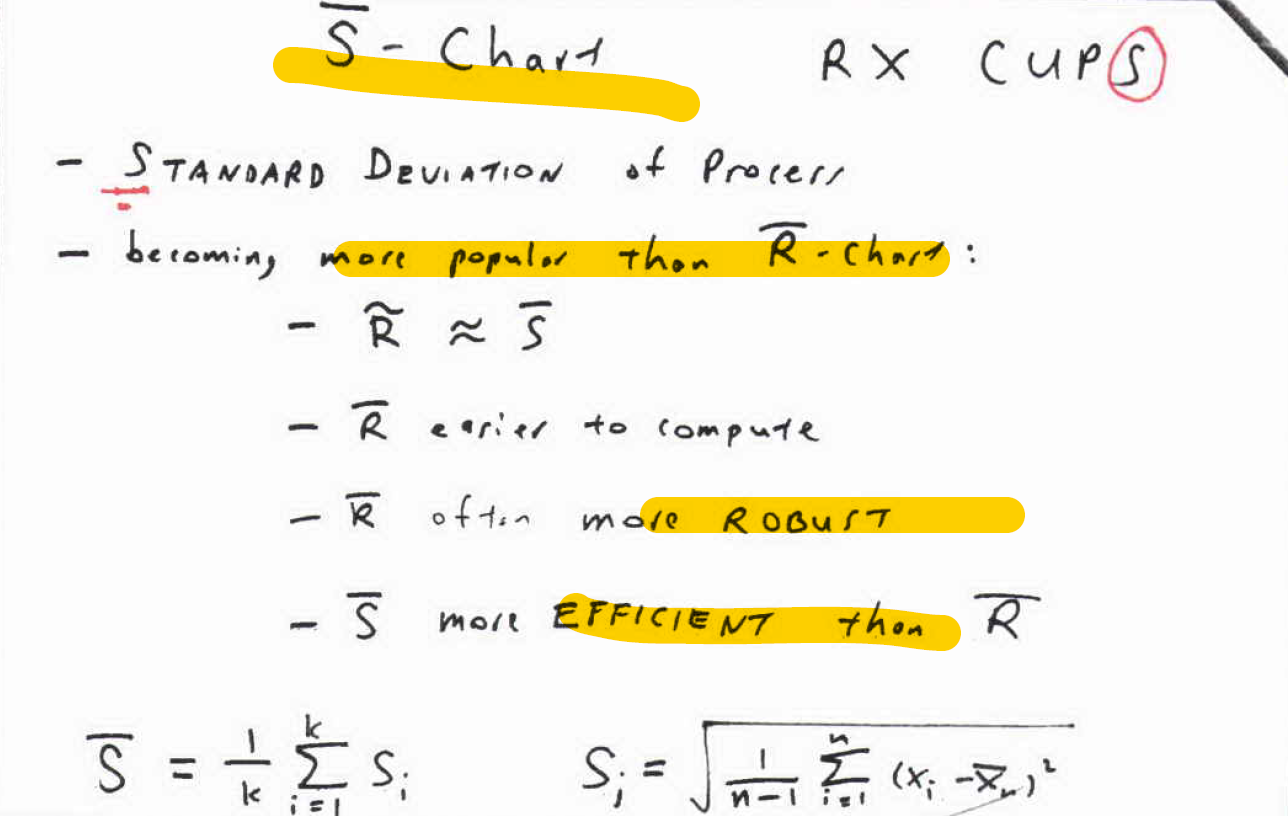 S̅ - Chart RX CUPS
- STANDARD DEVIATION of Process
- becoming more popular than R̅ - Chart :
- R̃ ≈ S̅
- R̅ easier to compute
- R̅ often more ROBUST
- S̅ more EFFICIENT than R̅
S̅ = 1/k ∑_{i=1}^{k} S_i S_j = √(1/(n-1) ∑_{i=1}^{n} (x_i - x̅_n)²)